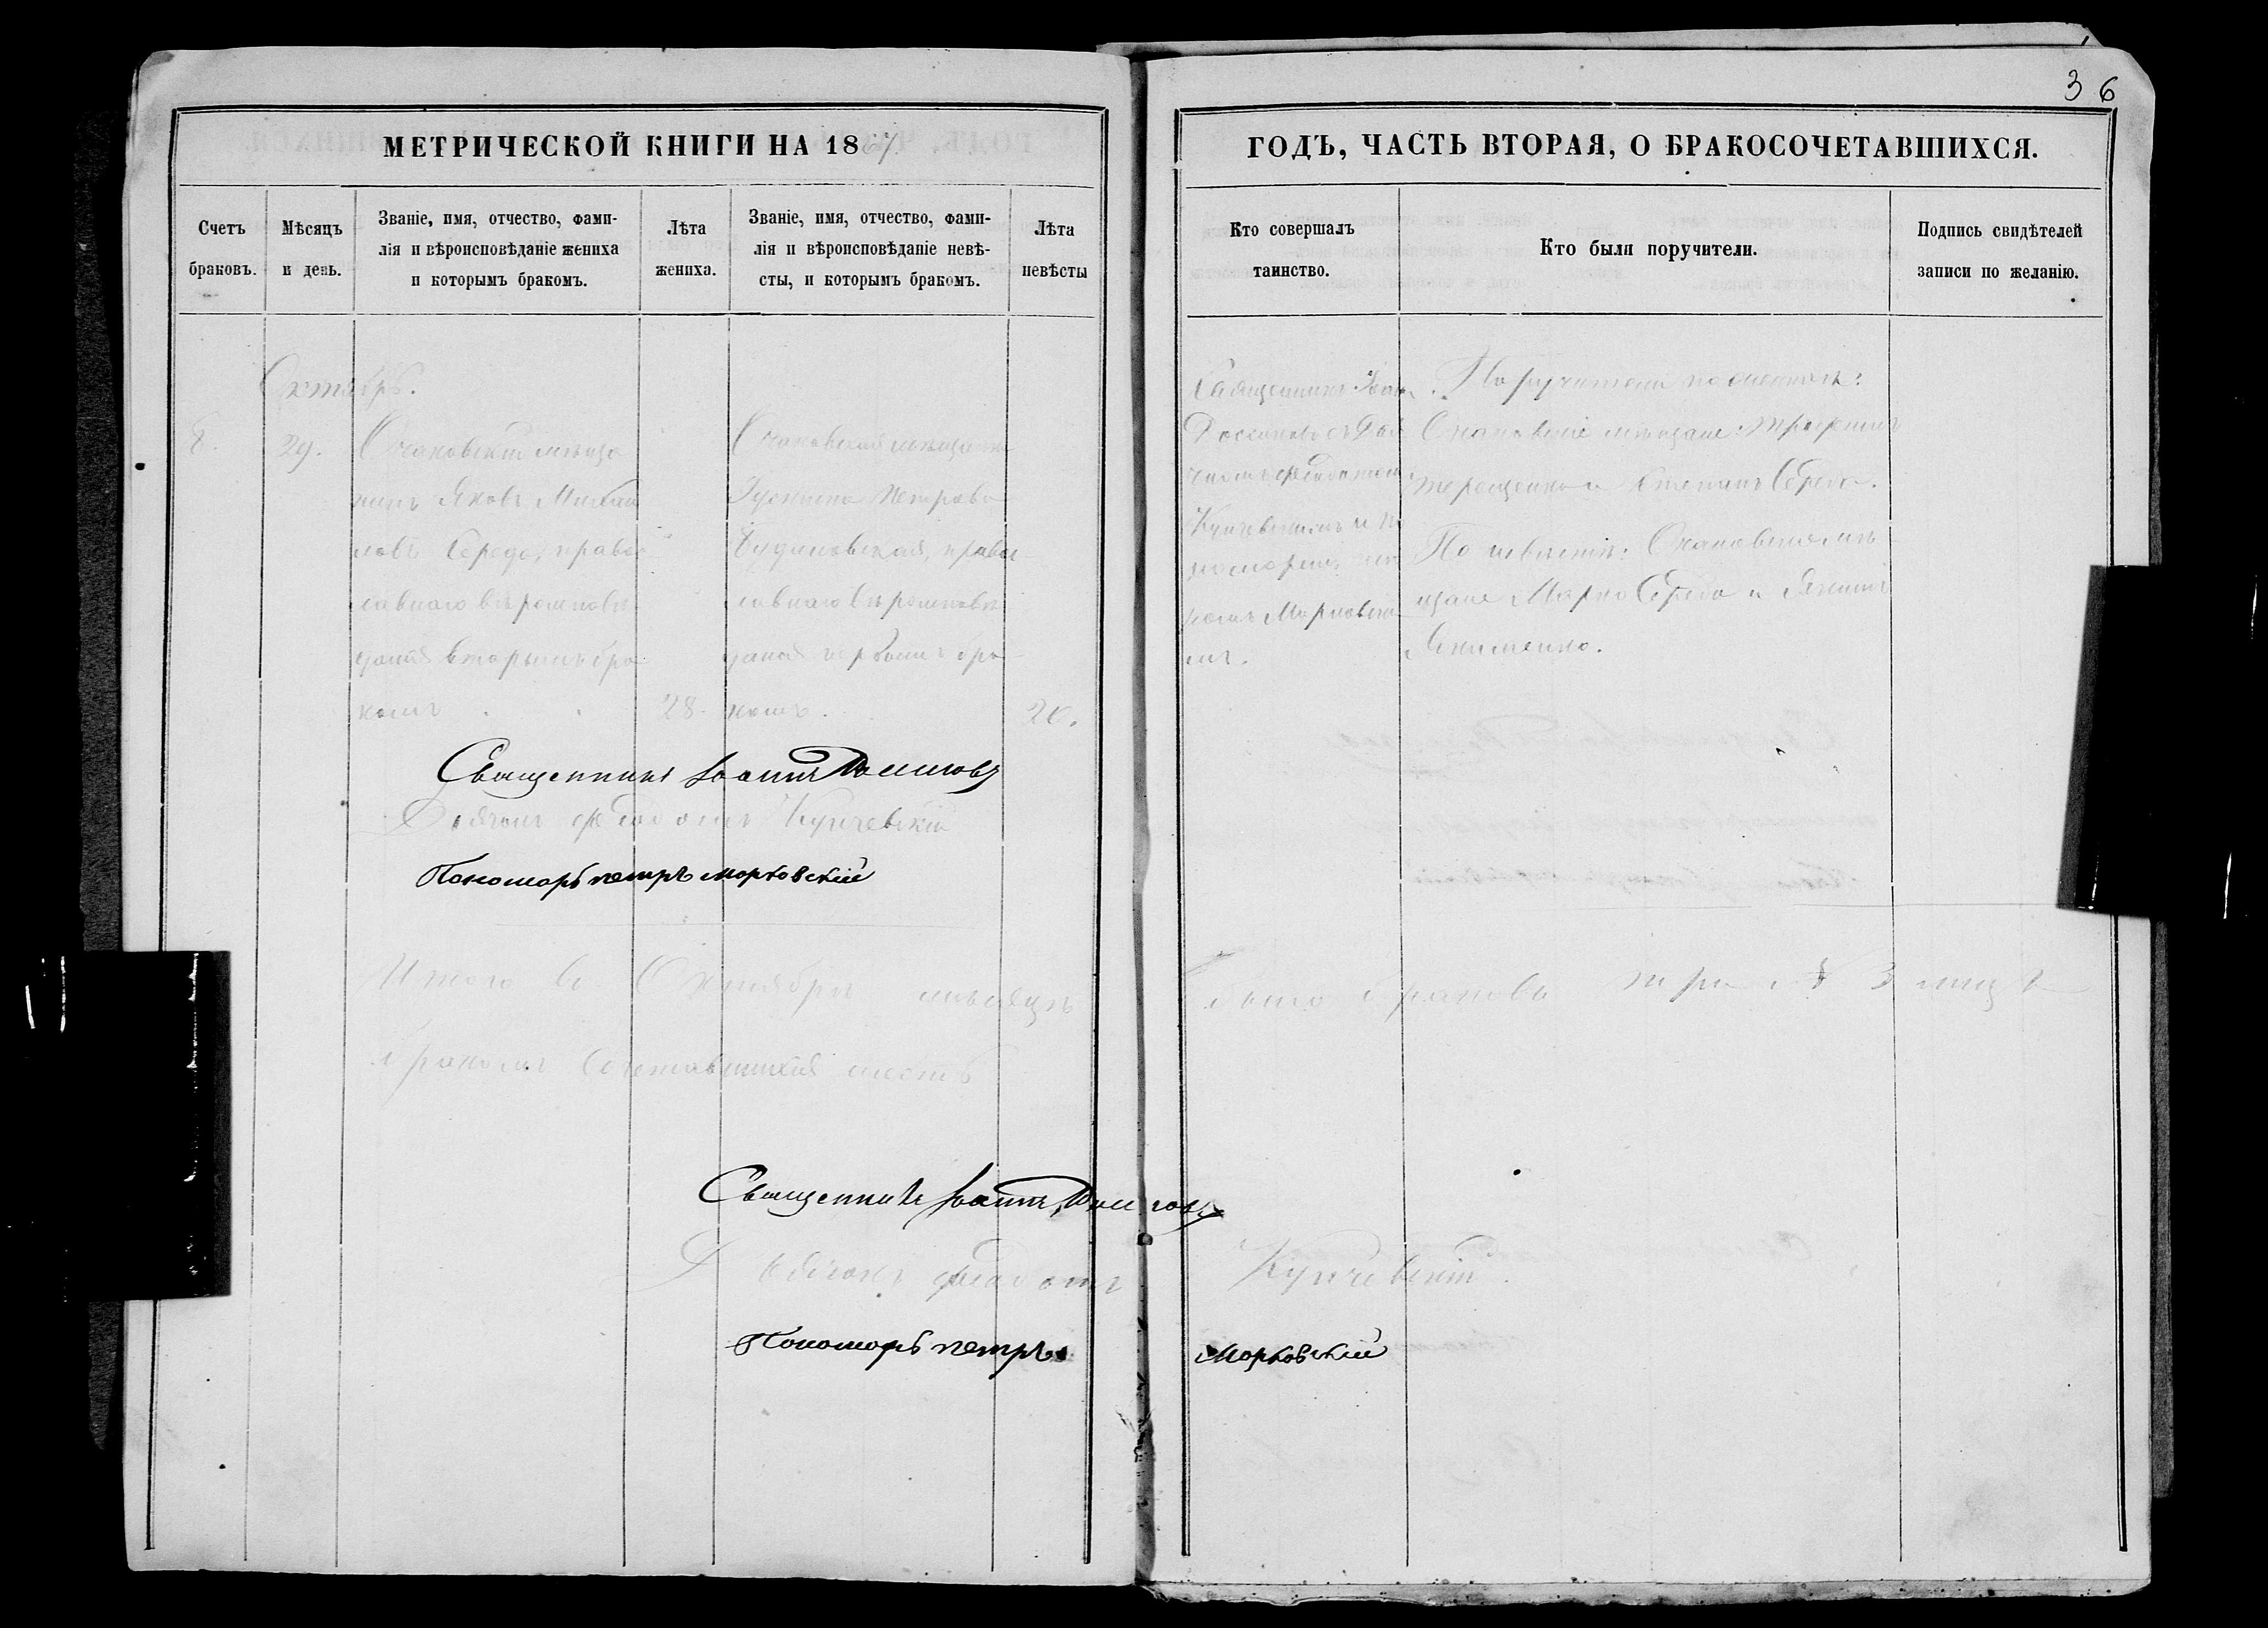 36
МЕТРИЧЕСКОЙ КНИГИ НА 1867.
ГОДЪ, ЧАСТЬ ВТОРАЯ, О БРАКОСОЧЕТАВШИХСЯ.
Счетъ
браковъ.
Мѣсяцъ
и день.
Званіе, имя, отчество, фами-
лія и вѣроисповѣданіе жениха
и которымъ бракомъ.
Лѣта
жениха.
Званіе, имя, отчество, фами-
лія и вѣроисповѣданіе невѣ-
сты, и которымъ бракомъ.
Лѣта
невѣсты
Кто совершалъ
таинство.
Кто были поручители.
Подпись свидѣтелей
записи по желанію.
Октябрь.
8.
29.
Очаковскій мѣща
нинъ Яковъ Михаи
ловъ Середа, право
славнаго вѣроисповѣ
данія вторымъ бра
комъ
28.
Очаковская мѣщанка
Петрова
православнаго вѣроисповѣ
данія первымъ бра
комъ.
20.
Священникъ
Купчевскимъ и По
номаремъ
комъ Марковски
мъ.
Поручители по женихѣ:
Очаковскіе мѣщане: Трофимъ
Терещенко и Степанъ Середа.
По невѣстѣ: Очаковскіе мѣ
щане Марко Середа и
Якименко.
Священникъ Іоаннъ
Дьячокъ Федотъ Купчевскій
Пономарь Петръ Марковскій
Итого въ Октябрѣ мѣсяцѣ
было браковъ три 3 лицъ
бракомъ сочетавшихся шесть
Священникъ Іоаннъ
Дьячокъ Федотъ Купчевскій.
Пономарь Петръ Марковскій